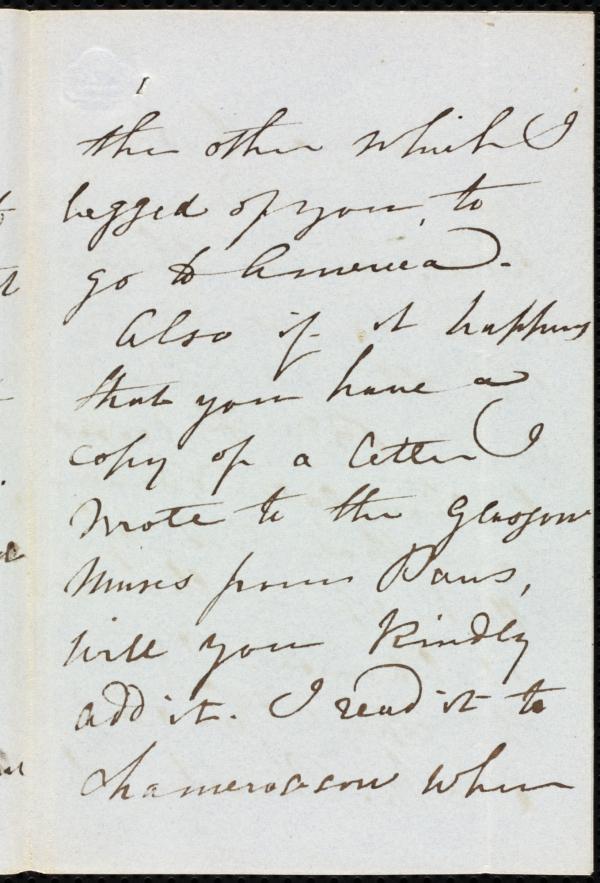 1
the other which I
begged of you, to
go to America.
Also if it happens
that you have a
copy of a letter I
wrote to the Glasgow
from Paris,
will you kindly
add it. I read it to
when